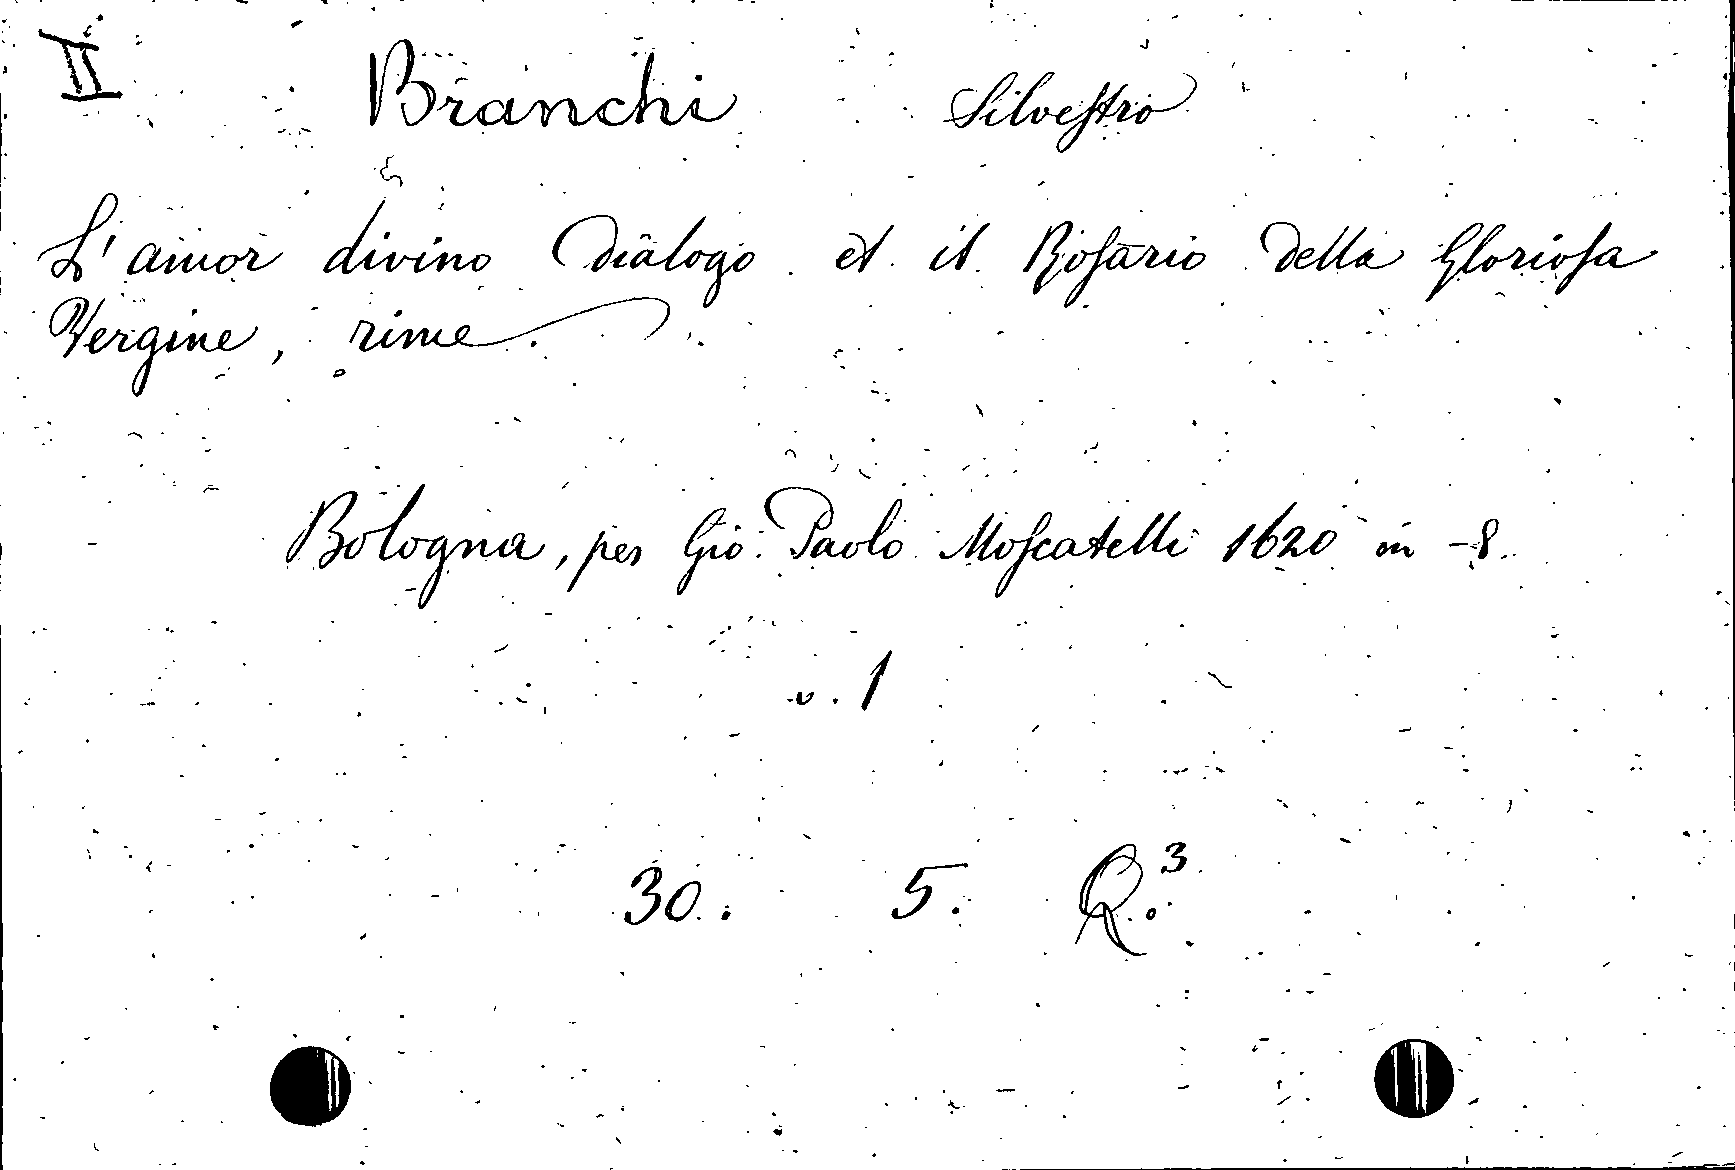 II Branchi Silvestro
L'amor divino Dialogo et il Rosario della Gloriosa
Vergine, rime.
Bologna, per Gio. Paolo Moscatelli 1620 in -8.
v. 1
30. 5. Q.3